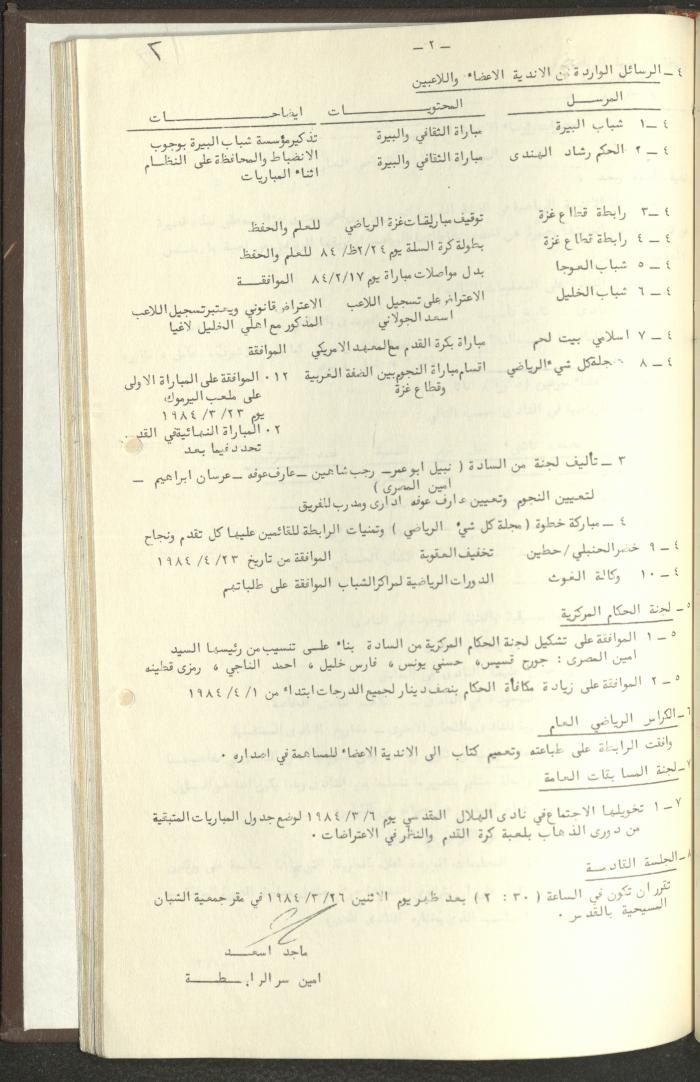 ٢
— ٢ —
٤ـ الرسائل الواردة من الاندية الاعضاء واللاعبين
المرسل المحتويات ايضاحات
٤ـ١ شباب البيرة مباراة الثقافي والبيرة تذكير مؤسسة شباب البيرة بوجوب
٤ـ٢ الحكم رشاد الهندى مباراة الثقافي والبيرة الانضباط والمحافظة على النظام
اثناء المباريات
٤ـ٣ رابطة قطاع غزة توقيف مباريات غزة الرياضي للعلم والحفظ
٤ـ٤ رابطة قطاع غزة بطولة كرة السلة يوم ٢/٢٤/٨٤ للعلم والحفظ
٤ـ٥ شباب العوجا بدل مواصلات مباراة يوم ٨٤/٢/١٧ الموافقة
٤ـ٦ شباب الخليل الاعتراض على تسجيل اللاعب الاعتراض قانوني ويعتبر تسجيل اللاعب
اسعد الجولاني المذكور مع اهلي الخليل لاغيا
٤ـ٧ اسلامي بيت لحم مباراة بكرة القدم مع المعهد الامريكي الموافقة
٤ـ٨ مجلة كل شيء الرياضي اقسام مباراة النجوم بين الضفة الغربية ٠١٢ الموافقة على المباراة الاولى
وقطاع غزة على ملعب اليرموك
يوم ٢٣/٣/١٩٨٤
٠٢ المباراة النهائية في القدس
تحدد فيما بعد
٣ـ تأليف لجنة من السادة ( نبيل ابو عمر ـ رجب شاهين ـ عارف عوفه ـ عرسان ابراهيم ـ
امين المصرى )
لتعيين النجوم وتعيين عارف عوفه ادارى ومدرب للفريق
٤ـ مباركة خطوة ( مجلة كل شيء الرياضي ) وتمنيات الرابطة للقائمين عليها كل تقدم ونجاح
٤ـ٩ خضر الحنبلي/حطين تخفيف العقوبة الموافقة من تاريخ ٢٣/٤/١٩٨٤
٤ـ١٠ وكالة الغوث الدورات الرياضية لمراكز الشباب الموافقة على طلباتهم
٥ـ لجنة الحكام المركزية
٥ـ١ الموافقة على تشكيل لجنة الحكام المركزية من السادة بناء على تنسيب من رئيسها السيد
امين المصرى : جورج قسيس، حسني يونس، فارس خليل، احمد الناجي، رمزى قطينه
٥ـ٢ الموافقة على زيادة مكافأة الحكام بنصف دينار لجميع الدرجات ابتداء من ١/٤/١٩٨٤
٦ـ الكراس الرياضي العام
وافقت الرابطة على طباعته وتعميم كتاب الى الاندية الاعضاء للمساهمة في اصداره ٠
٧ـ لجنة المسابقات العامة
٧ـ١ تخويلها الاجتماع في نادى الهلال المقدسي يوم ٦/٣/١٩٨٤ لوضع جدول المباريات المتبقية
من دورى الذهاب بلعبة كرة القدم والنظر في الاعتراضات ٠
٨ـ الجلسة القادمة
تقرر ان تكون في الساعة ( ٣٠ : ٢ ) بعد ظهر يوم الاثنين ٢٦/٣/١٩٨٤ في مقر جمعية الشبان
المسيحية بالقدس ٠
ماجد اسعد
امين سر الرابطة